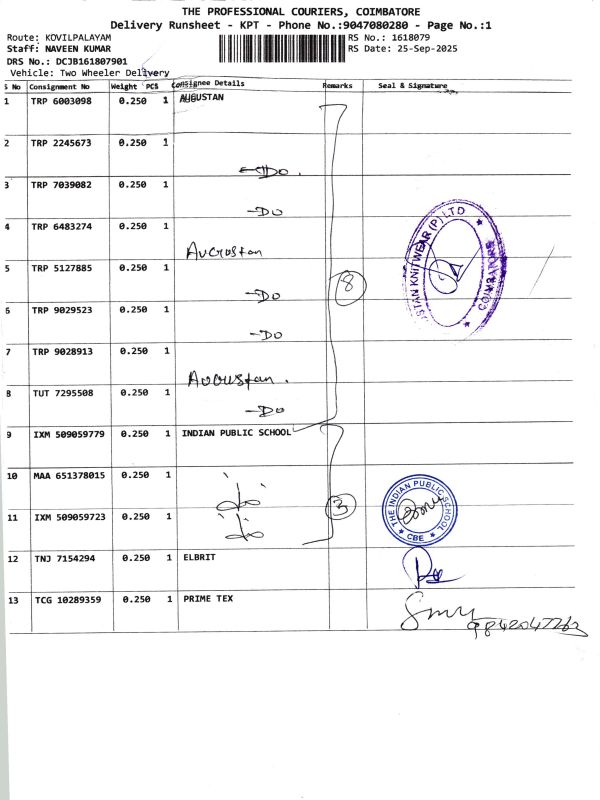 THE PROFESSIONAL COURIERS, COIMBATORE
Delivery Runsheet - KPT - Phone No.:9047080280 - Page No.:1
Route: KOVILPALAYAM
RS No.: 1618079
Staff: NAVEEN KUMAR
RS Date: 25-Sep-2025
DRS No.: DCJB161807901
Vehicle: Two Wheeler Delivery
S No Consignment No Weight PCS Consignee Details Remarks Seal & Signature
1 TRP 6003098 0.250 1 AUGUSTAN
2 TRP 2245673 0.250 1 -Do.
3 TRP 7039082 0.250 1 -Do
4 TRP 6483274 0.250 1 Augustan
5 TRP 5127885 0.250 1 -Do
8
6 TRP 9029523 0.250 1 -Do
7 TRP 9028913 0.250 1 Augustan.
8 TUT 7295508 0.250 1 -Do
STAN KNITWEAR (P) LTD
COIMBATORE
9 IXM 509059779 0.250 1 INDIAN PUBLIC SCHOOL
10 MAA 651378015 0.250 1 do
3
11 IXM 509059723 0.250 1 do
THE INDIAN PUBLIC SCHOOL
CBE
12 TNJ 7154294 0.250 1 ELBRIT
13 TCG 10289359 0.250 1 PRIME TEX